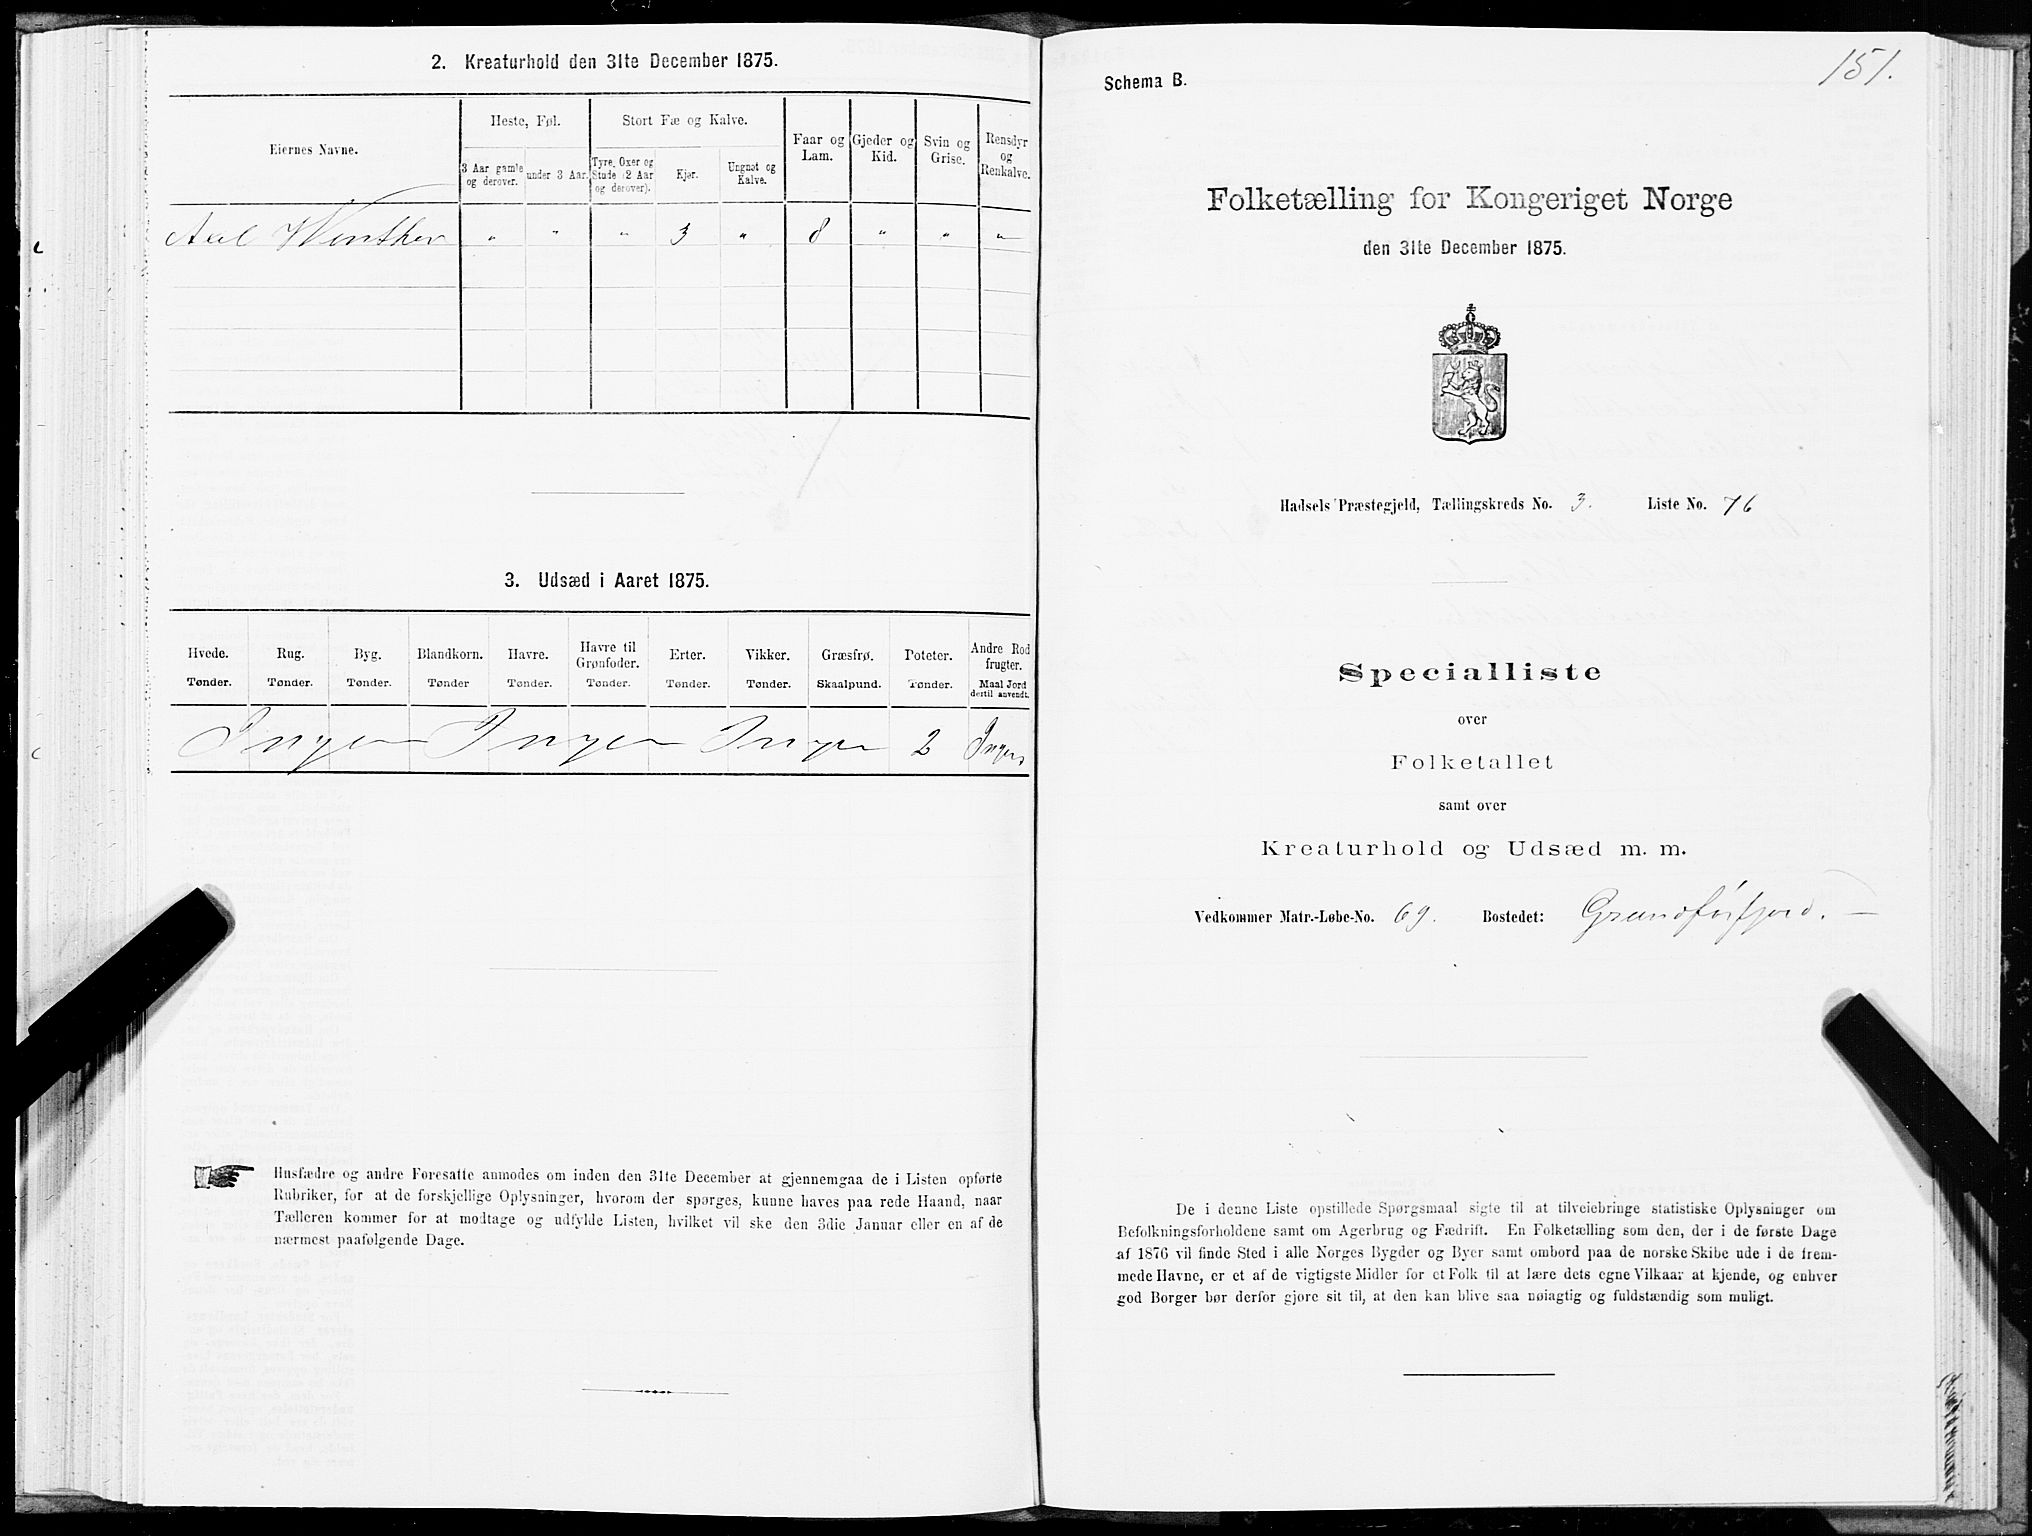 2. Kreaturhold den 31te December 1875.
Eiernes Navne.
Heste, Føl.
Stort Fæ og Kalve.
Faar og Lam.
Gjeder og Kid.
Svin og Grise.
Rensdyr og Renkalve.
3 Aar gamle og derover.
under 3 Aar.
Tyre, Oxer og Stude (2 Aar og derover).
Kjør.
Ungnøt og Kalve.
Winther " " " 3 " 8 " " "
3. Udsæd i Aaret 1875.
Hvede. Rug. Byg. Blandkorn. Havre. Havre til Grønfoder. Erter. Vikker. Græsfrø. Poteter. Andre Rodfrugter.
Tønder. Tønder. Tønder. Tønder Tønder. Tønder. Tønder. Tønder. Skaalpund. Tønder. Maal Jord dertil anvendt.
Ingen Ingen Ingen 2 Ingen
Husfædre og andre Foresatte anmodes om inden den 31te December at gjennemgaa de i Listen opførte
Rubriker, for at de forskjellige Oplysninger, hvorom der spørges, kunne haves paa rede Haand, naar
Tælleren kommer for at modtage og udfylde Listen, hvilket vil ske den 3die Januar eller en af de
nærmest paafølgende Dage.
151.
Schema B.
Folketælling for Kongeriget Norge
den 31te December 1875.
Hadsels Præstegjeld, Tællingskreds No. 3. Liste No. 76
Specialliste
over
Folketallet
samt over
Kreaturhold og Udsæd m. m.
Vedkommer Matr.-Løbe-No. 69. Bostedet: Grundførfjord.
De i denne Liste opstillede Spørgsmaal sigte til at tilveiebringe statistiske Oplysninger om
Befolkningsforholdene samt om Agerbrug og Fædrift. En Folketælling som den, der i de første Dage
af 1876 vil finde Sted i alle Norges Bygder og Byer samt ombord paa de norske Skibe ude i de frem-
mede Havne, er et af de vigtigste Midler for et Folk til at lære dets egne Vilkaar at kjende, og enhver
god Borger bør derfor gjøre sit til, at den kan blive saa nøiagtig og fuldstændig som muligt.